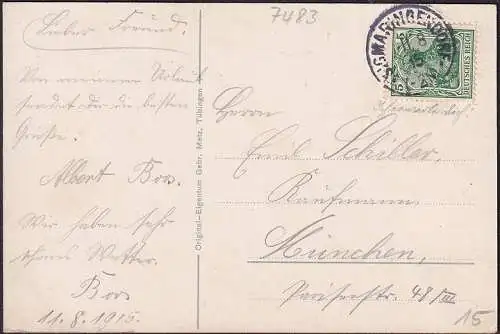 7483
Lieber Freund.
Von meinem Urlaub
sendet dir die besten
Grüße.
Albert Bos.
Wir haben sehr
schönes Wetter.
Bos
11.8.1915.
Original-Eigentum Gebr. Metz, Tübingen
SIGMARINGENDORF
DEUTSCHES REICH
5
Herrn
Emil Schiller,
Kaufmann
München,
48 III
15